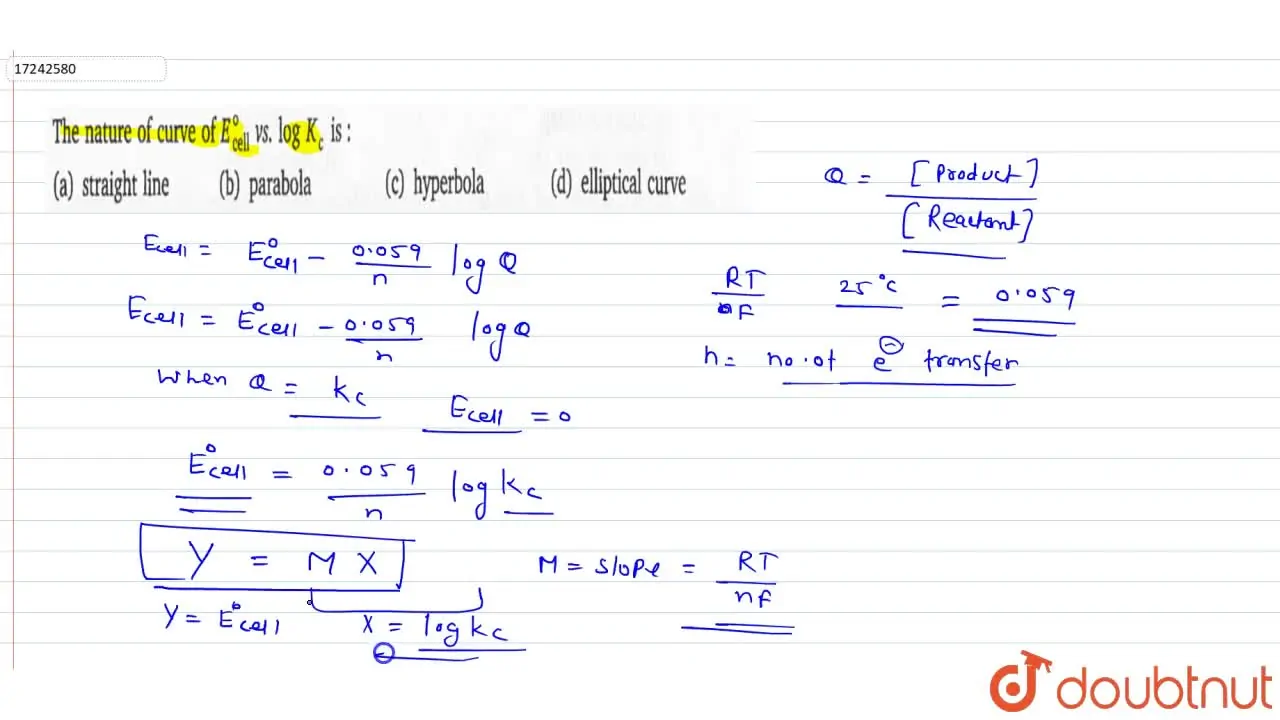 17242580
The nature of curve of E°cell vs. log Kc is :
(a) straight line (b) parabola (c) hyperbola (d) elliptical curve
Q = [Product] / [Reactant]
Ecell = E°cell - 0.059/n log Q
RT/F 25°C = 0.059
Ecell = E°cell - 0.059/n log Q
n = no. of e⊖ transfer
When Q = kc
Ecell = 0
E°cell = 0.059/n log kc
Y = M X
M = Slope = RT/nF
Y = E°cell
X = log kc
doubtnut